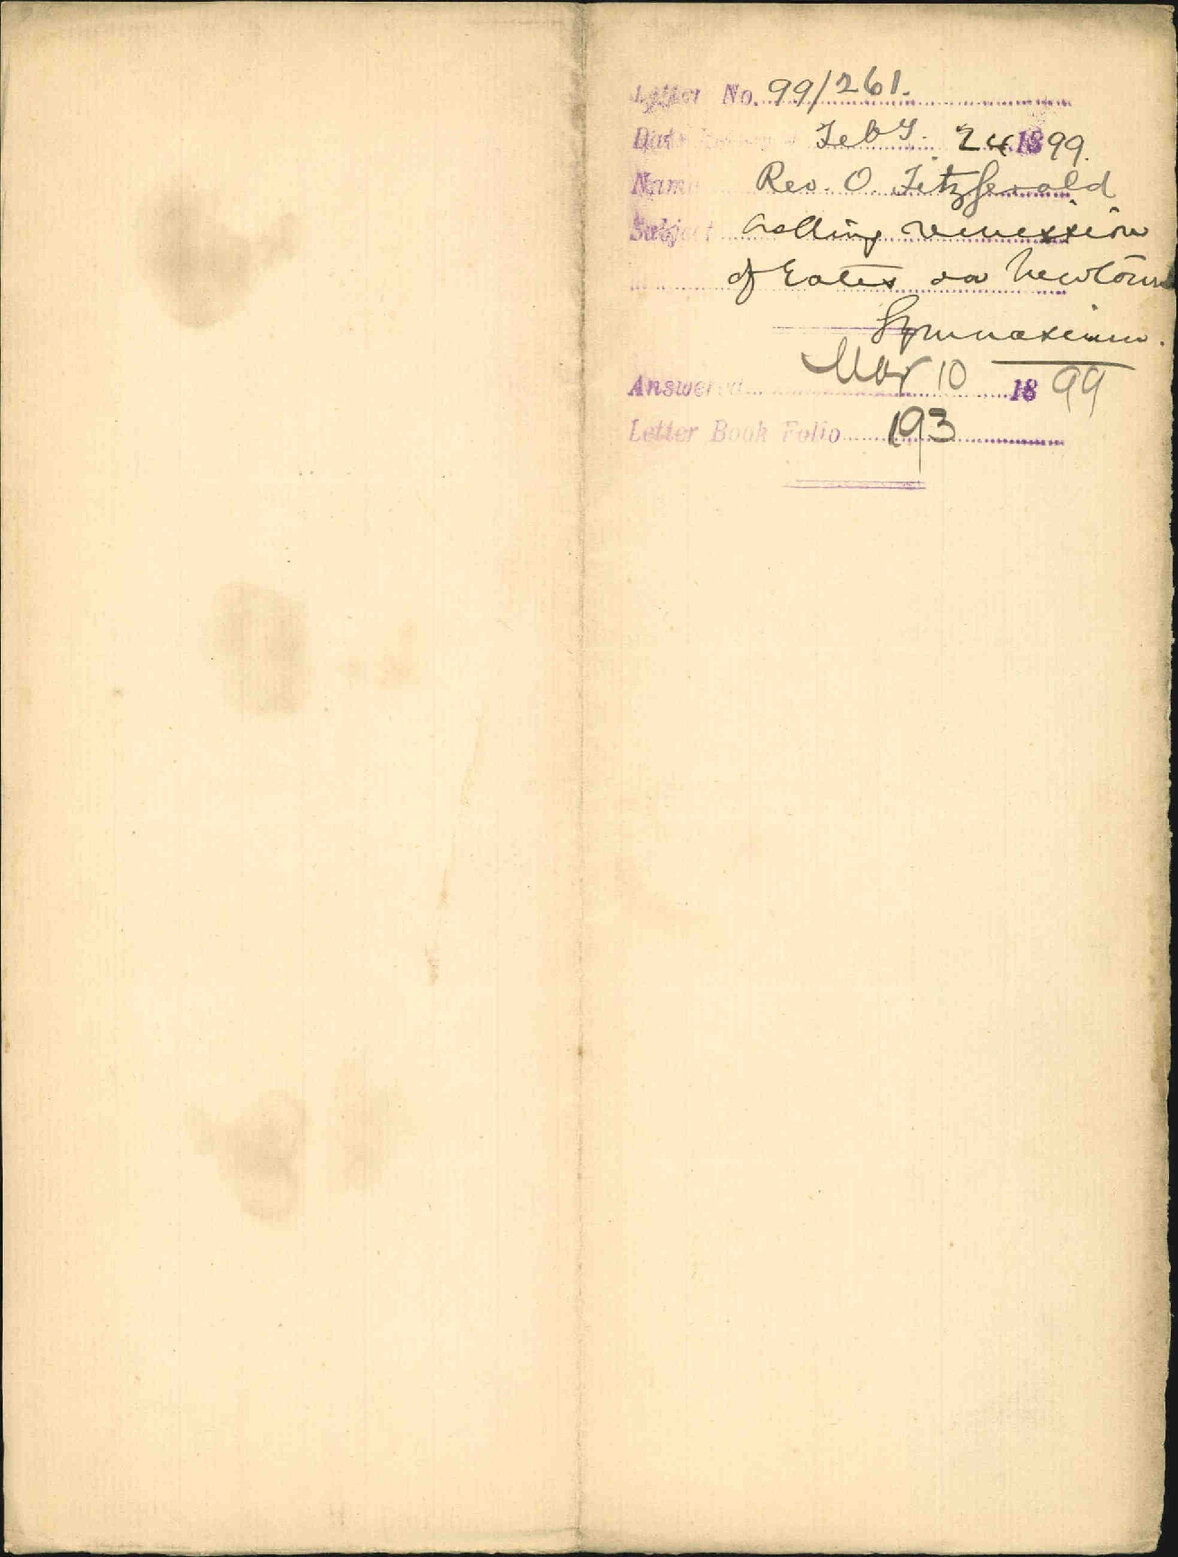 Letter No. 99/261.
Date Received Feby. 24 1899.
Name Rev. O. Fitzgerald
Subject asking remission
of rates on Newtown
Gymnasium.
Answered Mar 10 1899
Letter Book Folio 193